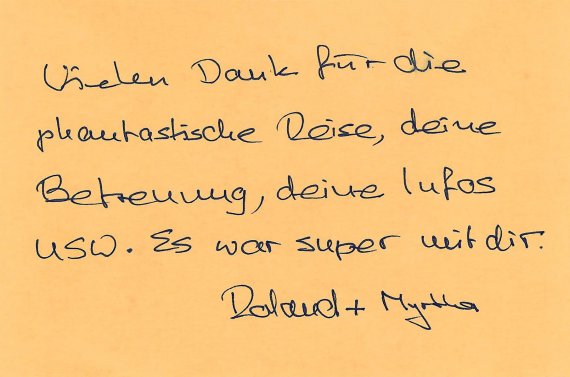 Vielen Dank für die
phantastische Reise, deine
Betreuung, deine Infos
usw. Es war super mit dir.
Roland + Myrtha